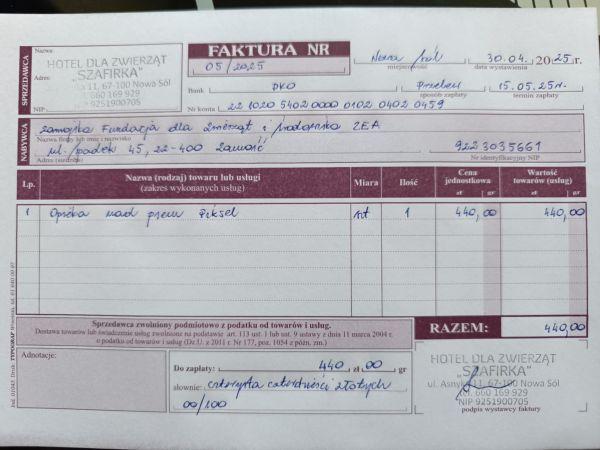 SPRZEDAWCA
Nazwa:
HOTEL DLA ZWIERZĄT
„SZAFIRKA”
Adres:
11, 67-100 Nowa Sól
660 169 929
NIP 9251900705
NIP:
FAKTURA NR
05/2025
Nowa Sól
miejscowość
30.04. 2025 r.
data wystawienia
Bank PKO
Przelew
sposób zapłaty
15.05.25r.
termin zapłaty
Nr konta 22 1020 5402 0000 0102 0402 0459
NABYWCA
Zamojska Fundacja dla Zwierząt i Środowiska ZEA
Nazwa firmy lub imię i nazwisko
ul. 45, 22-400 Zamość
Adres (siedziba)
9223035661
Nr identyfikacyjny NIP
Lp. Nazwa (rodzaj) towaru lub usługi (zakres wykonanych usług) Miara Ilość Cena jednostkowa Wartość towarów (usług)
zł gr zł gr
1 Opieka nad psem Piksel 1 440,00 440,00
Sprzedawca zwolniony podmiotowo z podatku od towarów i usług.
Dostawa towarów lub świadczenie usług zwolnione na podstawie art. 113 ust. 1 lub ust. 9 ustawy z dnia 11 marca 2004 r.
o podatku od towarów i usług (Dz.U. z 2011 r. Nr 177, poz. 1054 z późn. zm.)
RAZEM: 440,00
Adnotacje:
Do zapłaty: 440 zł 00 gr
słownie: czterysta czterdzieści złotych
00/100
HOTEL DLA ZWIERZĄT
„SZAFIRKA”
ul. Asnyka 11, 67-100 Nowa Sól
tel. 660 169 929
NIP 9251900705
podpis wystawcy faktury